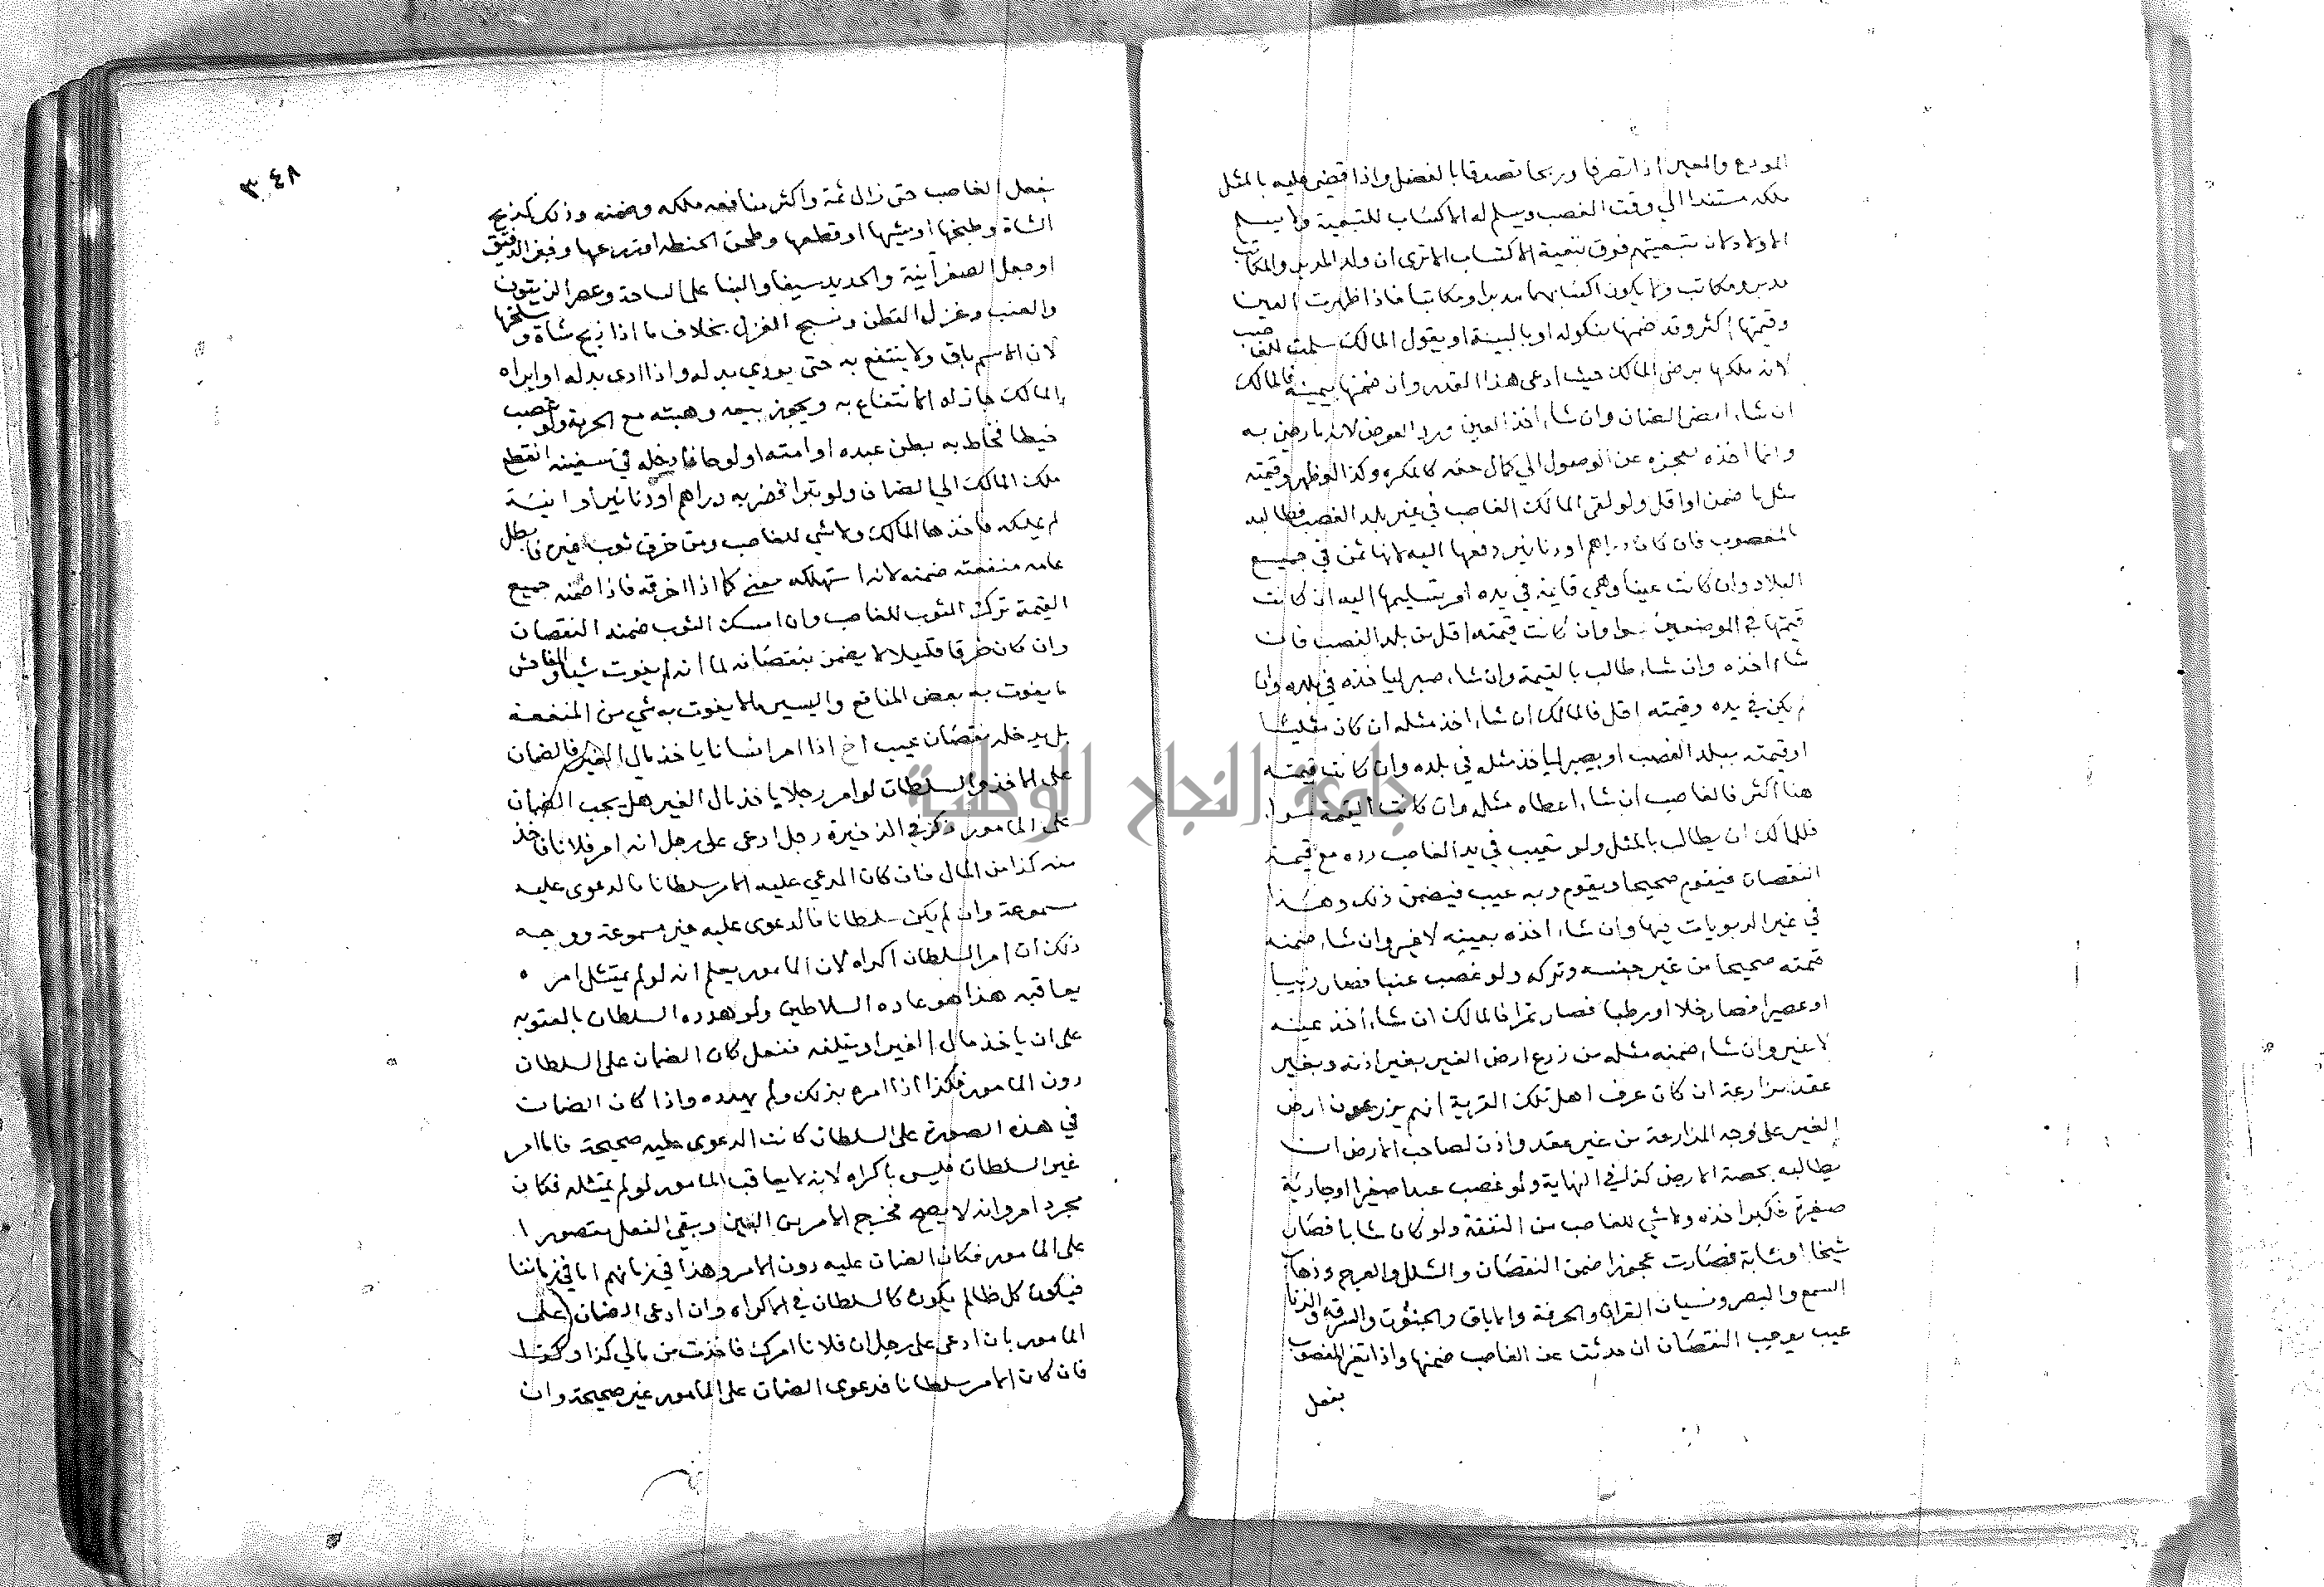 المودع والمعير اذا تصرفا وربحا تصدقا بالفضل واذا قضى عليه بالمثل
ملكه مستندا الي وقت الغصب ويسلم له الاكساب للتبعية ولا يسلم
الاولاد لان تبعيتهم فوق تبعية الاكتساب الا ترى ان ولد المدبر والمكاتب
مدبر ومكاتب ولا يكون اكسابهما مدبرا ومكاتبا فاذا ظهرت العين
وقيمتها اكثر وقد ضمنها بنكوله او بالبينة او بقول المالك سلمت للغاصب
لانه ملكها برضى المالك حيث ادعى هذا القدر وان ضمنها بيمينه فالمالك
ان شاء امضى الضمان وان شاء اخذ العين ورد العوض لانه ما رضي به
وانما اخذه لعجزه عن الوصول الي كمال حقه كالمكره وكذا لو ظهر وقيمته
مثل ما ضمن او اقل ولو لقى المالك الغاصب في غير بلد الغصب فطالبه
بالمغصوب فان كان دراهم او دنانير دفعها اليه لانها ثمن في جميع
البلاد وان كانت عينا وهي قايمة في يده امر بتسليمها اليه ان كانت
قيمتها في الموضعين سوا وان كانت قيمته اقل من بلد الغصب فان
شاء اخذه وان شاء طالب بالقيمة وان شاء صبر لياخذه في بلده وان
لم يكن في يده وقيمته اقل فالمالك ان شاء اخذ مثله ان كان مثليا
او قيمته ببلد الغصب او يصبر لياخذ مثله في بلده وان كانت قيمته
هنا اكثر فالغاصب ان شاء اعطاه مثله وان كانت القيمة سواء
فللمالك ان يطالب بالمثل ولو تعيب في يد الغاصب رده مع قيمة
النقصان فيقوم صحيحا ويقوم وبه عيب فيضمن ذلك وهذا
في غير الربويات فيها وان شاء اخذه بعينه لا غير وان شاء ضمنه
قيمته صحيحا من غير جنسه وتركه ولو غصب عنبا فصار زبيبا
او عصيرا فصار خلا او رطبا فصار تمرا فالمالك ان شاء اخذ عينه
لا غير وان شاء ضمنه مثله من زرع ارض الغير بغير اذنه وبغير
عقد مزارعة ان كان عرف اهل تلك القرية انهم يزرعون ارض
الغير على وجه المزارعة من غير عقد واذن لصاحب الارض ان
يطالبه بحصة الارض كذا في النهاية ولو غصب عبدا صغيرا او جارية
صغيرة فكبر اخذه ولا شي للغاصب من النفقة ولو كان شابا فصار
شيخا او شابة فصارت عجوزا ضمن النقصان والشلل والعرج وذهاب
السمع والبصر ونسيان القران والحرفة والاباق والجنون والسرقة والزنا
عيب يوجب النقصان ان حدثت عند الغاصب ضمنها واذا تغير المغصوب
بفعل
٣٤٨
بفعل الغاصب حتى زال اسمه واكثر منافعه ملكه وضمنه وذلك كذبح
الشاة وطبخها او شيها او قطعها وطحن الحنطه او زرعها وخبز الدقيق
او جعل الصفر آنية والحديد سيفا والبنا على الساحة وعصر الزيتون
والعنب وغزل القطن ونسج الغزل بخلاف ما اذا ذبح شاة وسلخها
لان الاسم باق ولا ينتفع به حتى يودي بدله واذا ادى بدله او ابراه
المالك جاز له الانتفاع به ويجوز بيعه وهبته مع الحرمة ولو غصب
خيطا فخاط به بطن عبده او امته او لوحا فادخله في سفينه انقطع
ملك المالك الي الضمان ولو تبرا فضربه دراهم او دنانير او انية
لم يملكه فاخذها المالك ولا شي للغاصب ومن خرق ثوب غيره فابطل
عامه منفعته ضمنه لانه استهلكه معنى كما اذا احرقه فاذا ضمنه جميع
القيمة ترك الثوب للغاصب وان امسك الثوب ضمنه النقصان
وان كان خرقا قليلا يضمن بنقصانه لما انه لم يفوت شيا والفاحش
ما يفوت به بعض المنافع واليسير ما لا يفوت به شي من المنفعة
بل يدخله نقصان عيب اذا امر انسانا ياخذ مال الغير فالضمان
على الاخذ والسلطان لو امر رجلا ياخذ مال الغير هل يجب الضمان
على المامور ذكر في الذخيرة رجل ادعى على رجل انه امر فلانا فاخذ
منه كذا من المال فان كان المدعي عليه الامر سلطانا فالدعوى عليه
مسموعة وان لم يكن سلطانا فالدعوى عليه غير مسموعة ووجه
ذلك ان امر السلطان اكراه لان المامور يعلم انه لو لم يمتثل امره
يعاقبه هذا هو عاده السلاطين ولو هدده السلطان بالعقوبه
على ان ياخذ مال الغير او يتلفه ففعل كان الضمان على السلطان
دون المامور فكذا اذا امره بذلك ولم يهدده واذا كان الضمان
في هذه الصورة على السلطان كانت الدعوى عليه صحيحة فاما امر
غير السلطان فليس باكراه لانه لا يعاقب المامور لو لم يمتثله فكان
مجرد امر وانه لا يصح فخرج الامر من البين وبقي الفعل مقصورا
على المامور فكان الضمان عليه دون الامر وهذا في زمانهم اما في زماننا
فيكون كل ظالم يكون كالسلطان في الاكراه وان ادعى الضمان على
المامور بان ادعى على رجل ان فلانا امرك فاخذت من مالي كذا وكذا
فان كان الامر سلطانا فدعوى الضمان على المامور غير صحيحة وان
جامعة النجاح الوطنية